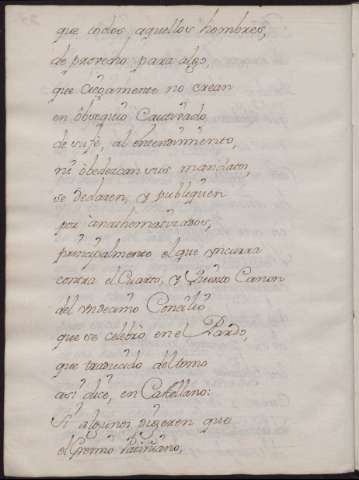 que todos aquellos hombres,
de provecho para algo,
que ciegamente no crean
en obsequio Cautivado
de su fè, al entendimiento,
ni òbedezcan sus mandatos,
se declaren, y publiquen
por ànathematizados,
principalmente el que yncurra
contra el Cuarto, y Quinto Canon
del vndecimo Concilio
que se celebrò en el Pardo,
que traducido del tomo
asi dice, en Castellano:
Si algunos dixeren que
el Gremio Patiñano,